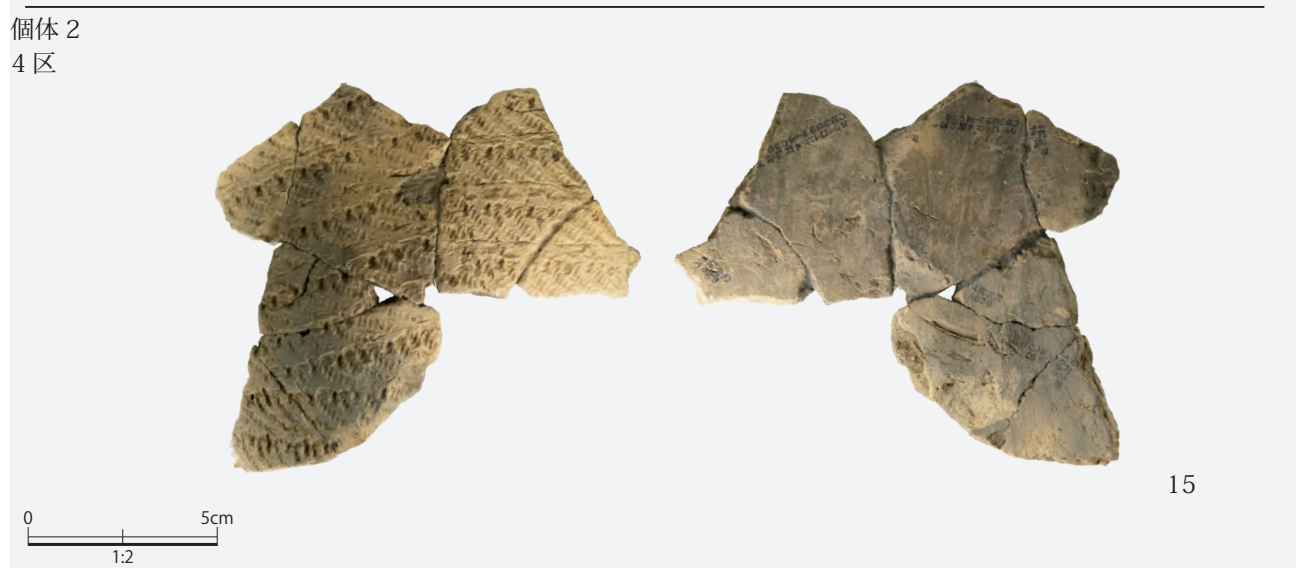 個体 2
4 区
15
0 5cm
1:2